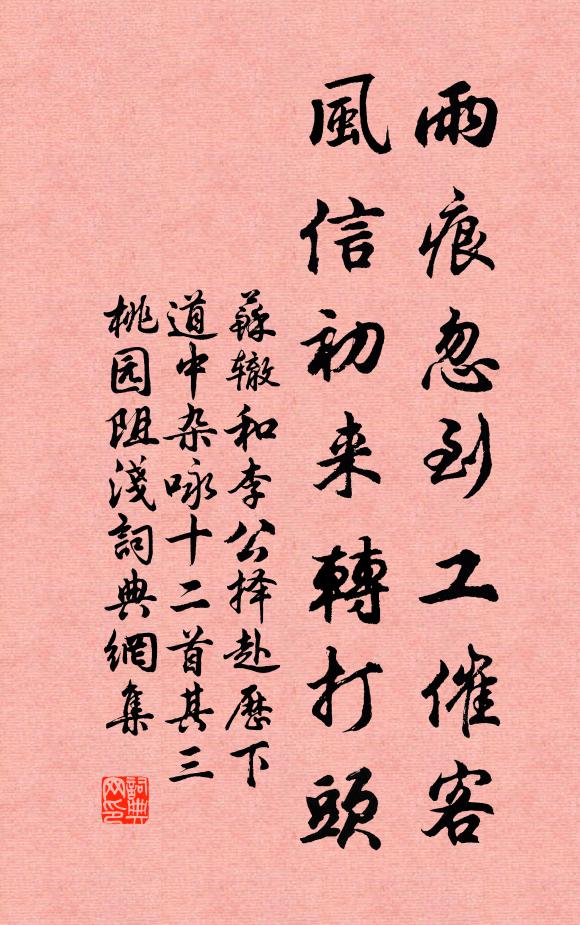 雨痕忽到工催客
風信初来轉打頭
蘇辙和李公择赴歷下
道中杂咏十二首其三
桃园阻淺詞典網集
詞典
网印